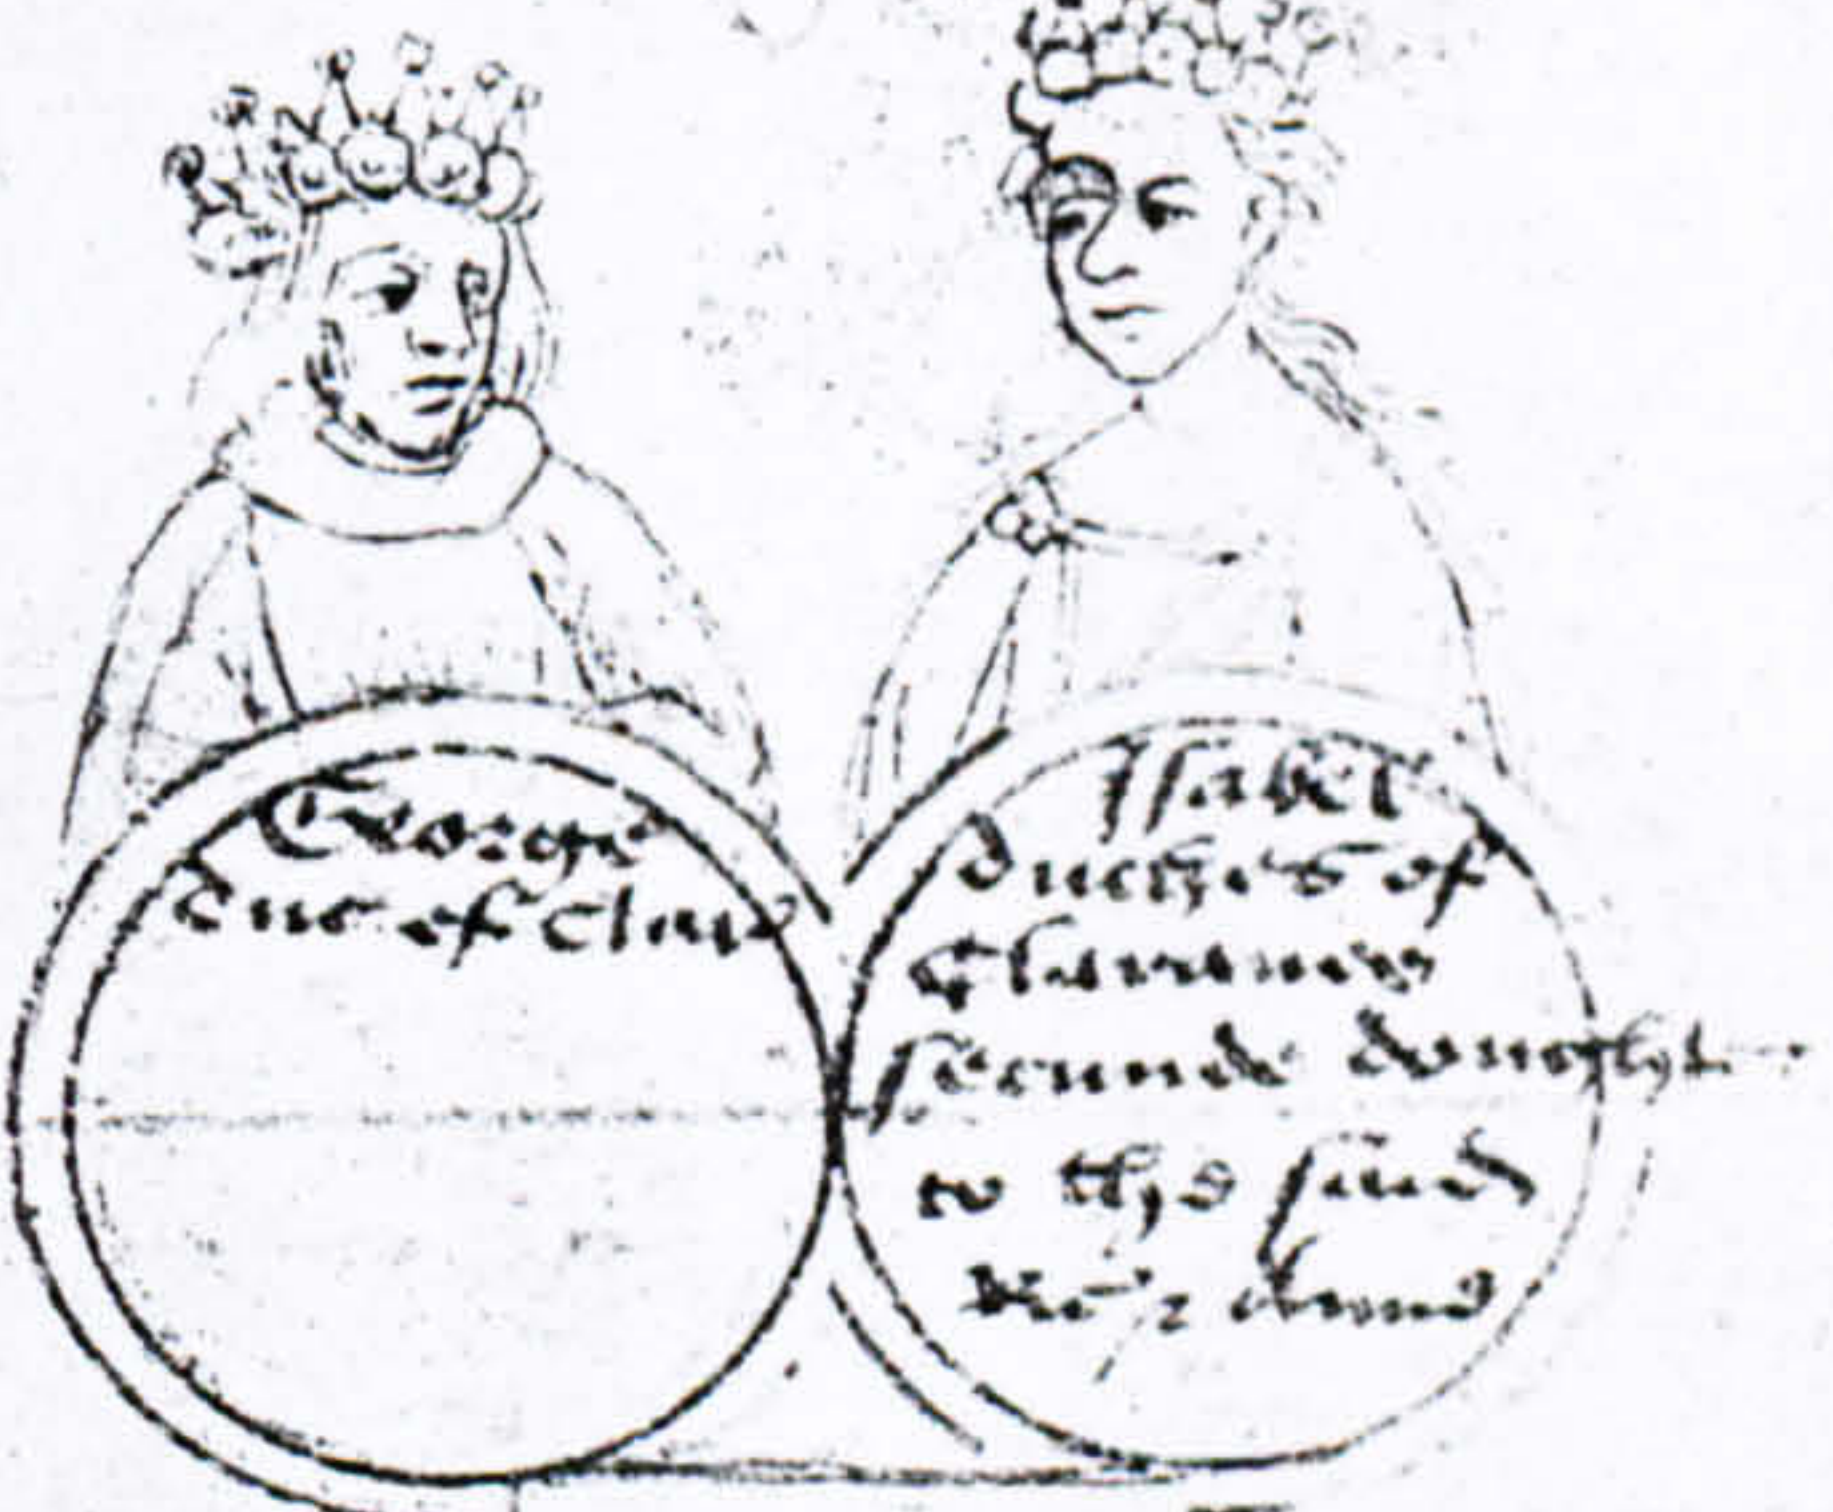 George
duc of Clar
Isabel
duches of
Clarence
secunde dought
to thys
Ric' & Anne